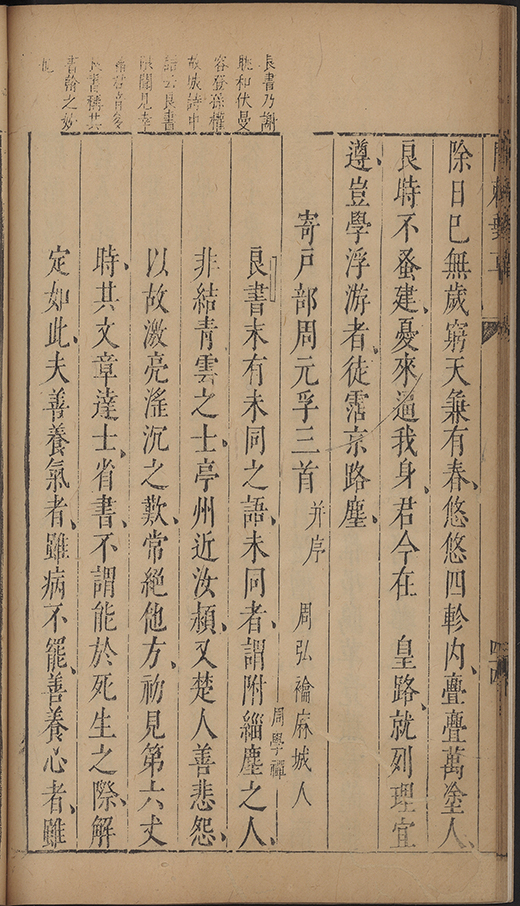 良書乃謝
眺和伏曼
容登孫權
故城詩中
語云良書
限聞見幸
良書稱其
書翰之妙
也
除日巳無歲窮天兼有春、悠悠四軫內、亹亹萬塗人、
良時不蚤建、憂來逼我身、君今在 皇路、就列理宜
遵、豈學浮游者、徒霑京路塵、
寄戶部周元孚三首 并序 周弘禴麻城人
周學禪
良書末有未同之語、未同者、謂附緇塵之人、
非結青雲之士、亭州近汝頴、又楚人善悲怨、
以故激亮滛沉之歎、常絕他方、初見第六丈
時、其文章達士、省書、不謂能於死生之際、解
定如此、夫善養氣者、雖病不罷、善養心者、雖